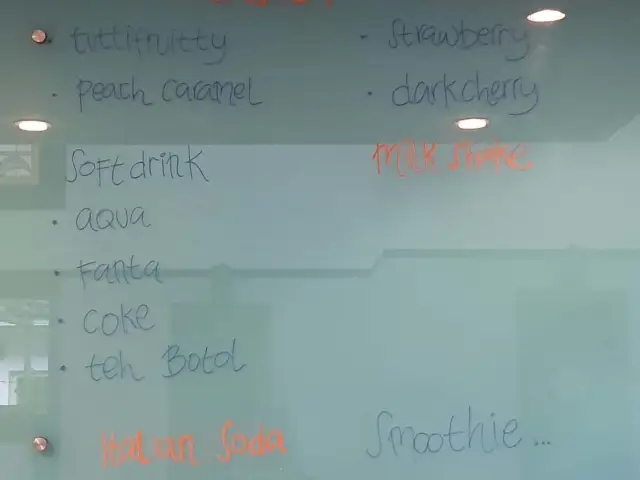 • tuttifruitty
• peach caramel
Soft drink
• aqua
• Fanta
• coke
• teh Botol
Italian Soda
• Strawberry
• darkcherry
Milk Shake
Smoothie...